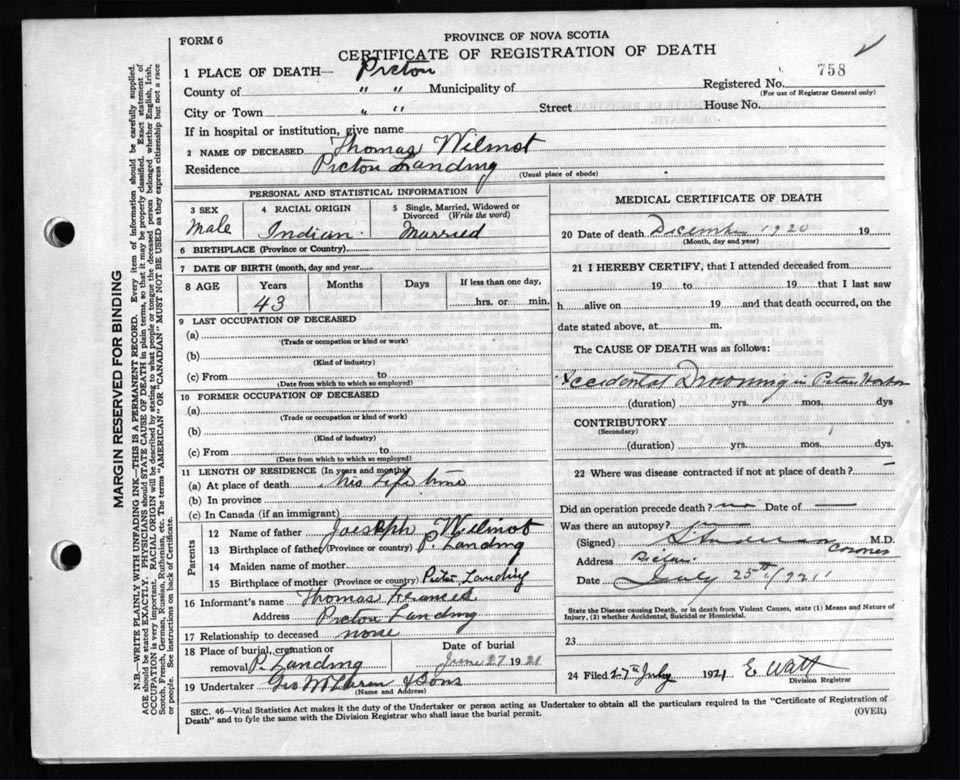 FORM 6
PROVINCE OF NOVA SCOTIA
CERTIFICATE OF REGISTRATION OF DEATH
1 PLACE OF DEATH— Pictou
758
Registered No.
(For use of Registrar General only)
County of " " Municipality of
City or Town " " Street House No.
If in hospital or institution, give name
2 NAME OF DECEASED Thomas Wilmot
Residence Pictou Landing
(Usual place of abode)
PERSONAL AND STATISTICAL INFORMATION
3 SEX
Male
4 RACIAL ORIGIN
Indian
5 Single, Married, Widowed or
Divorced (Write the word)
Married
6 BIRTHPLACE (Province or Country)
7 DATE OF BIRTH (month, day and year)
8 AGE Years Months Days If less than one day,
43 hrs. or min.
9 LAST OCCUPATION OF DECEASED
(a)
(Trade or occupation or kind or work)
(b)
(Kind of industry)
(c) From to
(Date from which to which so employed)
10 FORMER OCCUPATION OF DECEASED
(a)
(Trade or occupation or kind of work)
(b)
(Kind of industry)
(c) From to
(Date from which to which so employed)
11 LENGTH OF RESIDENCE (In years and months)
(a) At place of death his Life time
(b) In province
(c) In Canada (if an immigrant)
Parents
12 Name of father Joesph Wilmot
13 Birthplace of father (Province or country) P. Landing
14 Maiden name of mother
15 Birthplace of mother (Province or country) Pictou Landing
16 Informant's name Thomas Frances
Address Pictou Landing
17 Relationship to deceased none
18 Place of burial, cremation or
removal P. Landing
Date of burial
June 27 1921
19 Undertaker Geo McLaren & Sons
(Name and Address)
MEDICAL CERTIFICATE OF DEATH
20 Date of death December 1920 19
(Month, day and year)
21 I HEREBY CERTIFY, that I attended deceased from
19 to 19 that I last saw
h alive on 19 and that death occurred, on the
date stated above, at m.
The CAUSE OF DEATH was as follows:
Accidental Drowning in Pictou Harbor
(duration) yrs. mos. dys
CONTRIBUTORY
(Secondary)
(duration) yrs. mos. dys.
22 Where was disease contracted if not at place of death?
Did an operation precede death? no Date of —
Was there an autopsy?
(Signed) M.D.
Coroner
Address Pictou
Date July 25th 1921
State the Disease causing Death, or in death from Violent Causes, state (1) Means and Nature of
Injury, (2) whether Accidental, Suicidal or Homicidal.
23
24 Filed 27th July 1921 E Watt
Division Registrar
SEC. 46—Vital Statistics Act makes it the duty of the Undertaker or person acting as Undertaker to obtain all the particulars required in the "Certificate of Registration of
Death" and to fyle the same with the Division Registrar who shall issue the burial permit.
(OVER)
MARGIN RESERVED FOR BINDING
N.B.—WRITE PLAINLY WITH UNFADING INK—THIS IS A PERMANENT RECORD. Every item of information should be carefully supplied.
AGE should be stated EXACTLY. PHYSICIANS should STATE CAUSE OF DEATH in plain terms, so that it may be properly classified. Exact statement of
OCCUPATION is very important. RACIAL ORIGIN will be described by stating to what people or tongue the deceased person belonged whether English, Irish,
Scotch, French, German, Russian, Ruthenian, etc. The terms "AMERICAN" OR "CANADIAN" MUST NOT BE USED as they express citizenship but not a race
or people. See instructions on back of Certificate.